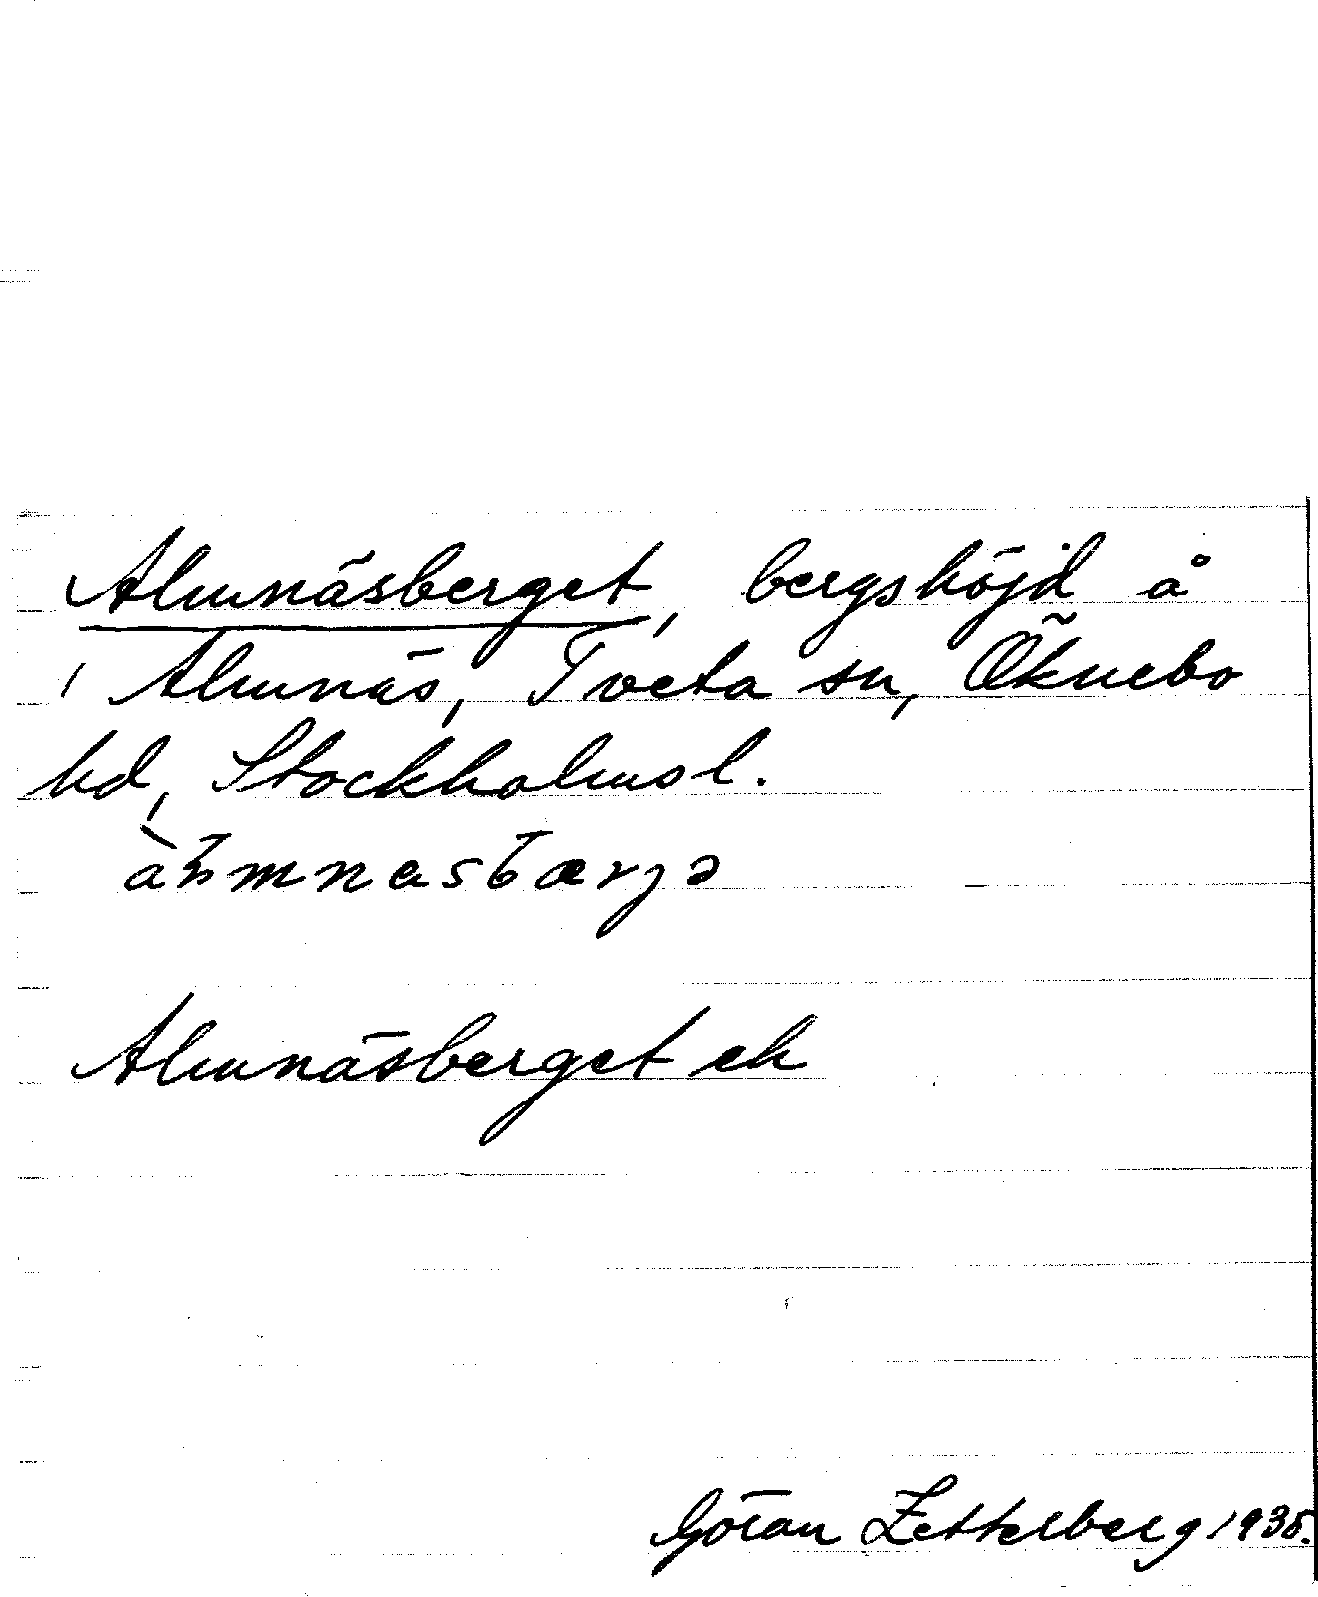 Almnäsberget, bergshöjd å
Almnäs, Tveta sn, Öknebo
hd, Stockholms l.
Almnäsberget ek
Göran Zetterberg 1935.